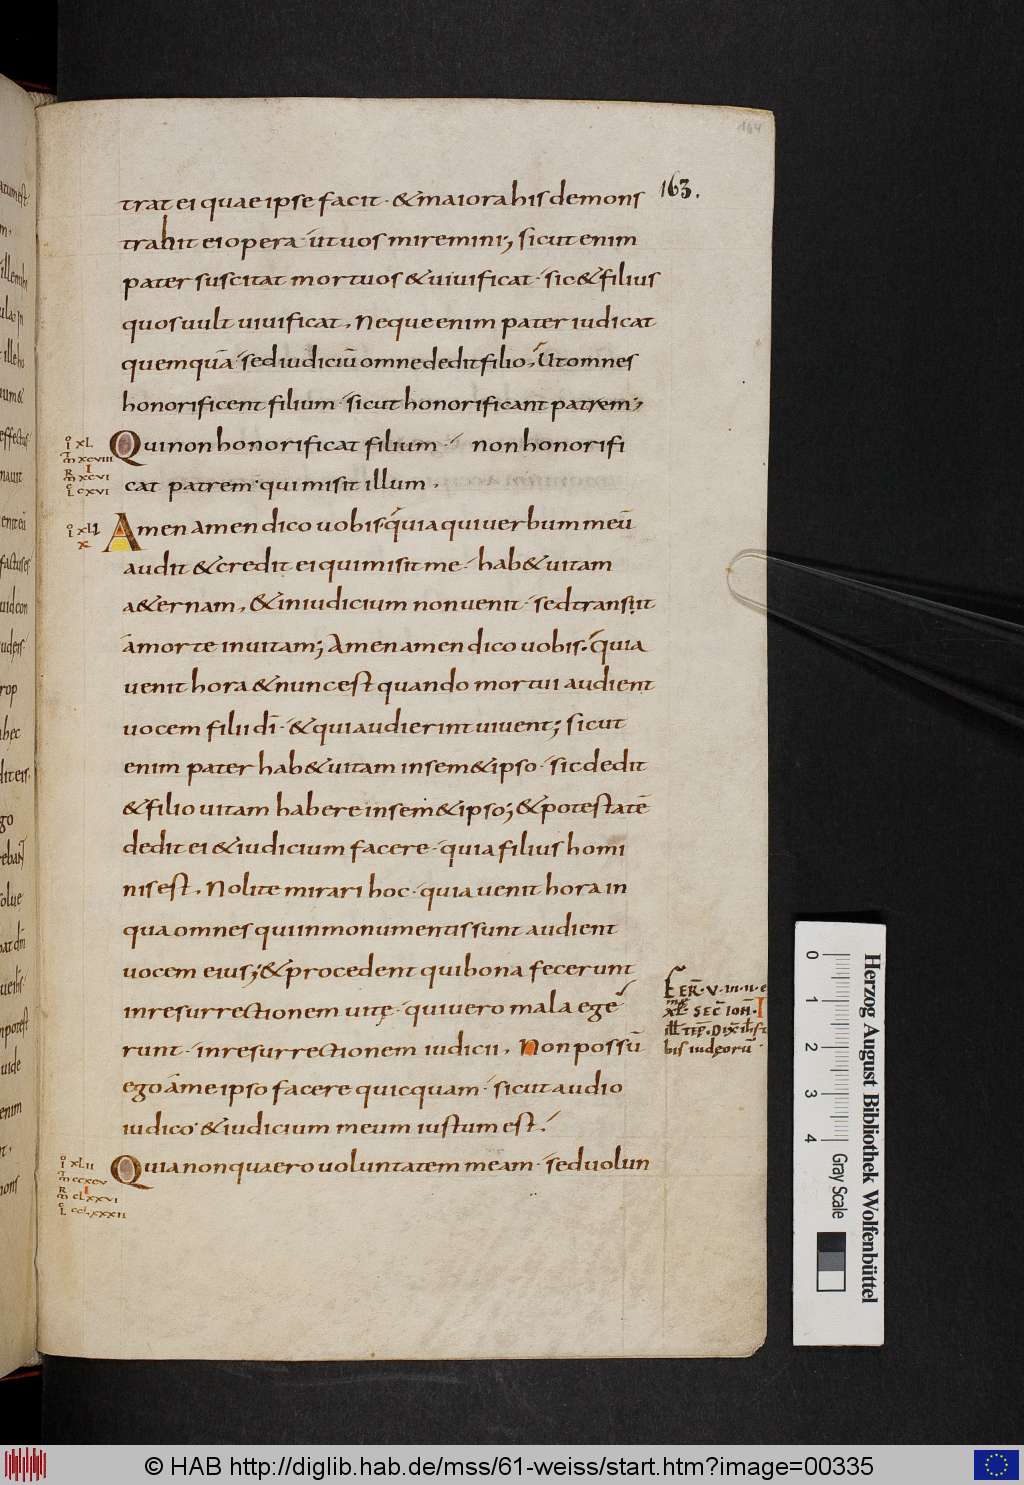 164
163.
trat ei quae ipse facit · & maiora his demons
trahit ei opera · ut uos miremini; sicut enim
pater suscitat mortuos & uiuificat · sic & filius
quos uult uiuificat. Neque enim pater iudicat
quemquā · sed iudiciū omne dedit filio. Ut omnes
honorificent filium · sicut honorificant patrem;
Qui non honorificat filium · non honorifi
cat patrem · qui misit illum.
Amen amen dico uobis · quia qui uerbum meū
audit & credit ei qui misit me · hab& uitam
a&ernam, & in iudicium non uenit · sed transiit
a morte in uitam; Amen amen dico uobis. quia
uenit hora & nunc est quando mortui audient
uocem filii dī · & qui audierint uiuent; sicut
enim pater hab& uitam in sem&ipso · sic dedit
& filio uitam habere in sem&ipso; & potestatē
dedit ei & iudicium facere · quia filius homi
nis est. Nolite mirari hoc · quia uenit hora in
qua omnes qui in monumentis sunt audient
uocem eius; & procedent qui bona fecerunt
in resurrectionem uitę · qui uero mala ege
runt · in resurrectionem iudicii. Non possū
ego a me ipso facere quicquam · sicut audio
iudico · & iudicium meum iustum est.
Quia non quaero uoluntatem meam · sed uolun
xl
xcviii
I
xcvi
cxvi
xli
x
xlii
ccxcv
I
clxxvi
cclxxxii
FER̄ · V · in · ii · e
xl · SEC̄ IOH̄ · I
ill TEP̄. Dix̄ ih̄s t
bis iudęorū ·
Herzog August Bibliothek Wolfenbüttel
0 1 2 3 4
Gray Scale
© HAB http://diglib.hab.de/mss/61-weiss/start.htm?image=00335